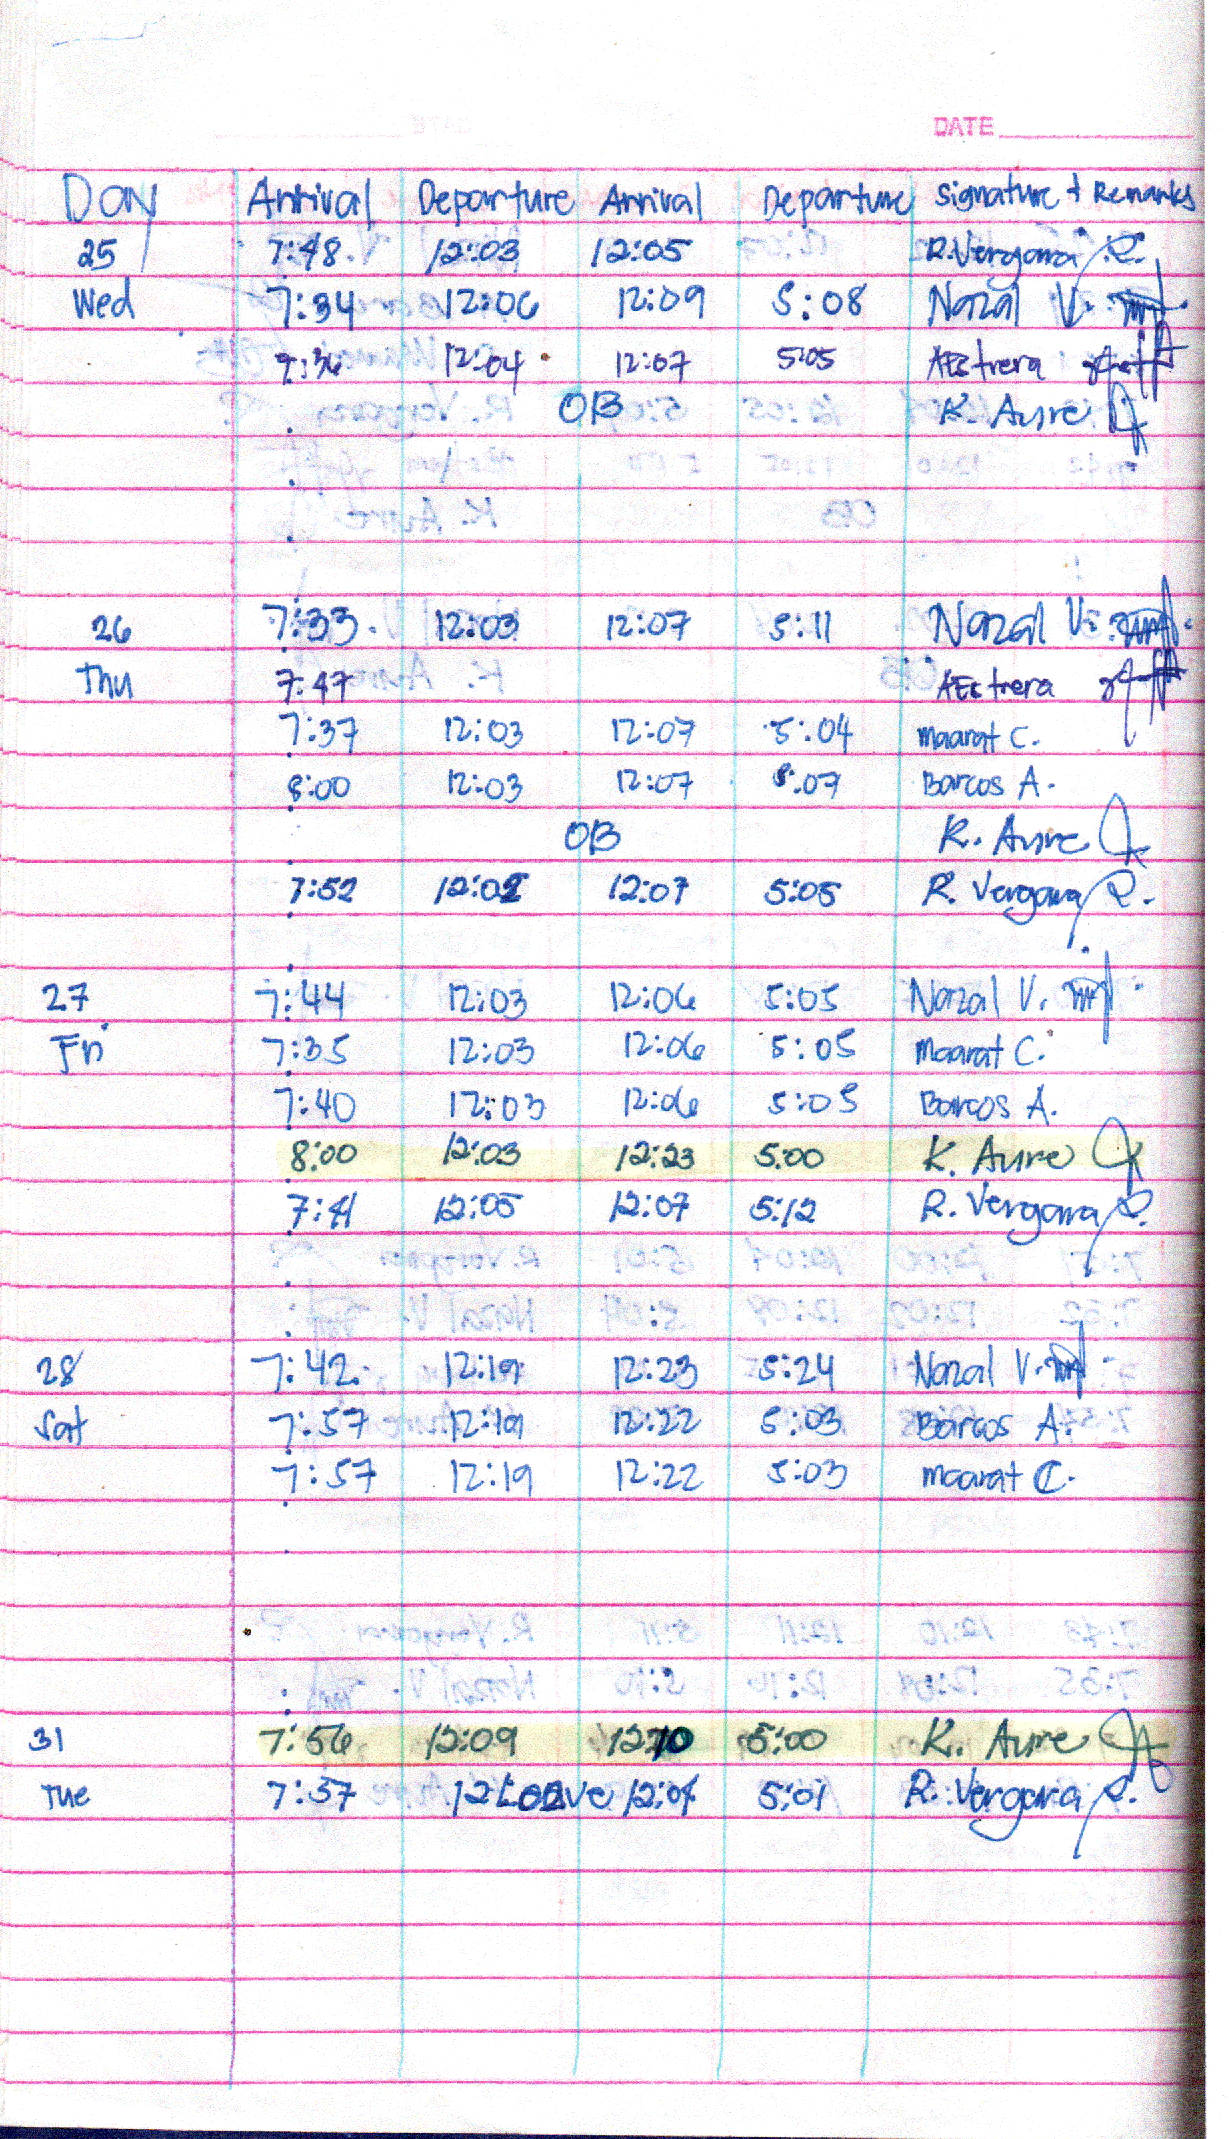 DATE
Day Arrival Departure Arrival Departure Signature + Remarks
25 7:48 12:03 12:05 R. Vergara R.
Wed 7:34 12:06 12:09 5:08 Nazal V.
7:36 12:04 12:07 5:05 AEstrera
OB K. Aure
26 7:33 12:03 12:07 5:11 Nazal V.
Thu 7:47 AEstrera
7:37 12:03 12:07 5:04 Maarat C.
8:00 12:03 12:07 5:07 Barcos A.
OB K. Aure
7:52 12:02 12:07 5:05 R. Vergara R.
27 7:44 12:03 12:06 5:05 Nazal V.
Fri 7:35 12:03 12:06 5:05 Maarat C.
7:40 12:03 12:06 5:05 Barcos A.
8:00 12:03 12:23 5:00 K. Aure
7:41 12:05 12:07 5:12 R. Vergara R.
28 7:42 12:19 12:23 5:24 Nazal V.
Sat 7:57 12:19 12:22 5:03 Barcos A.
7:57 12:19 12:22 5:03 Maarat C.
31 7:56 12:09 12:10 5:00 K. Aure
Tue 7:37 Leave 12:04 5:01 R. Vergara R.